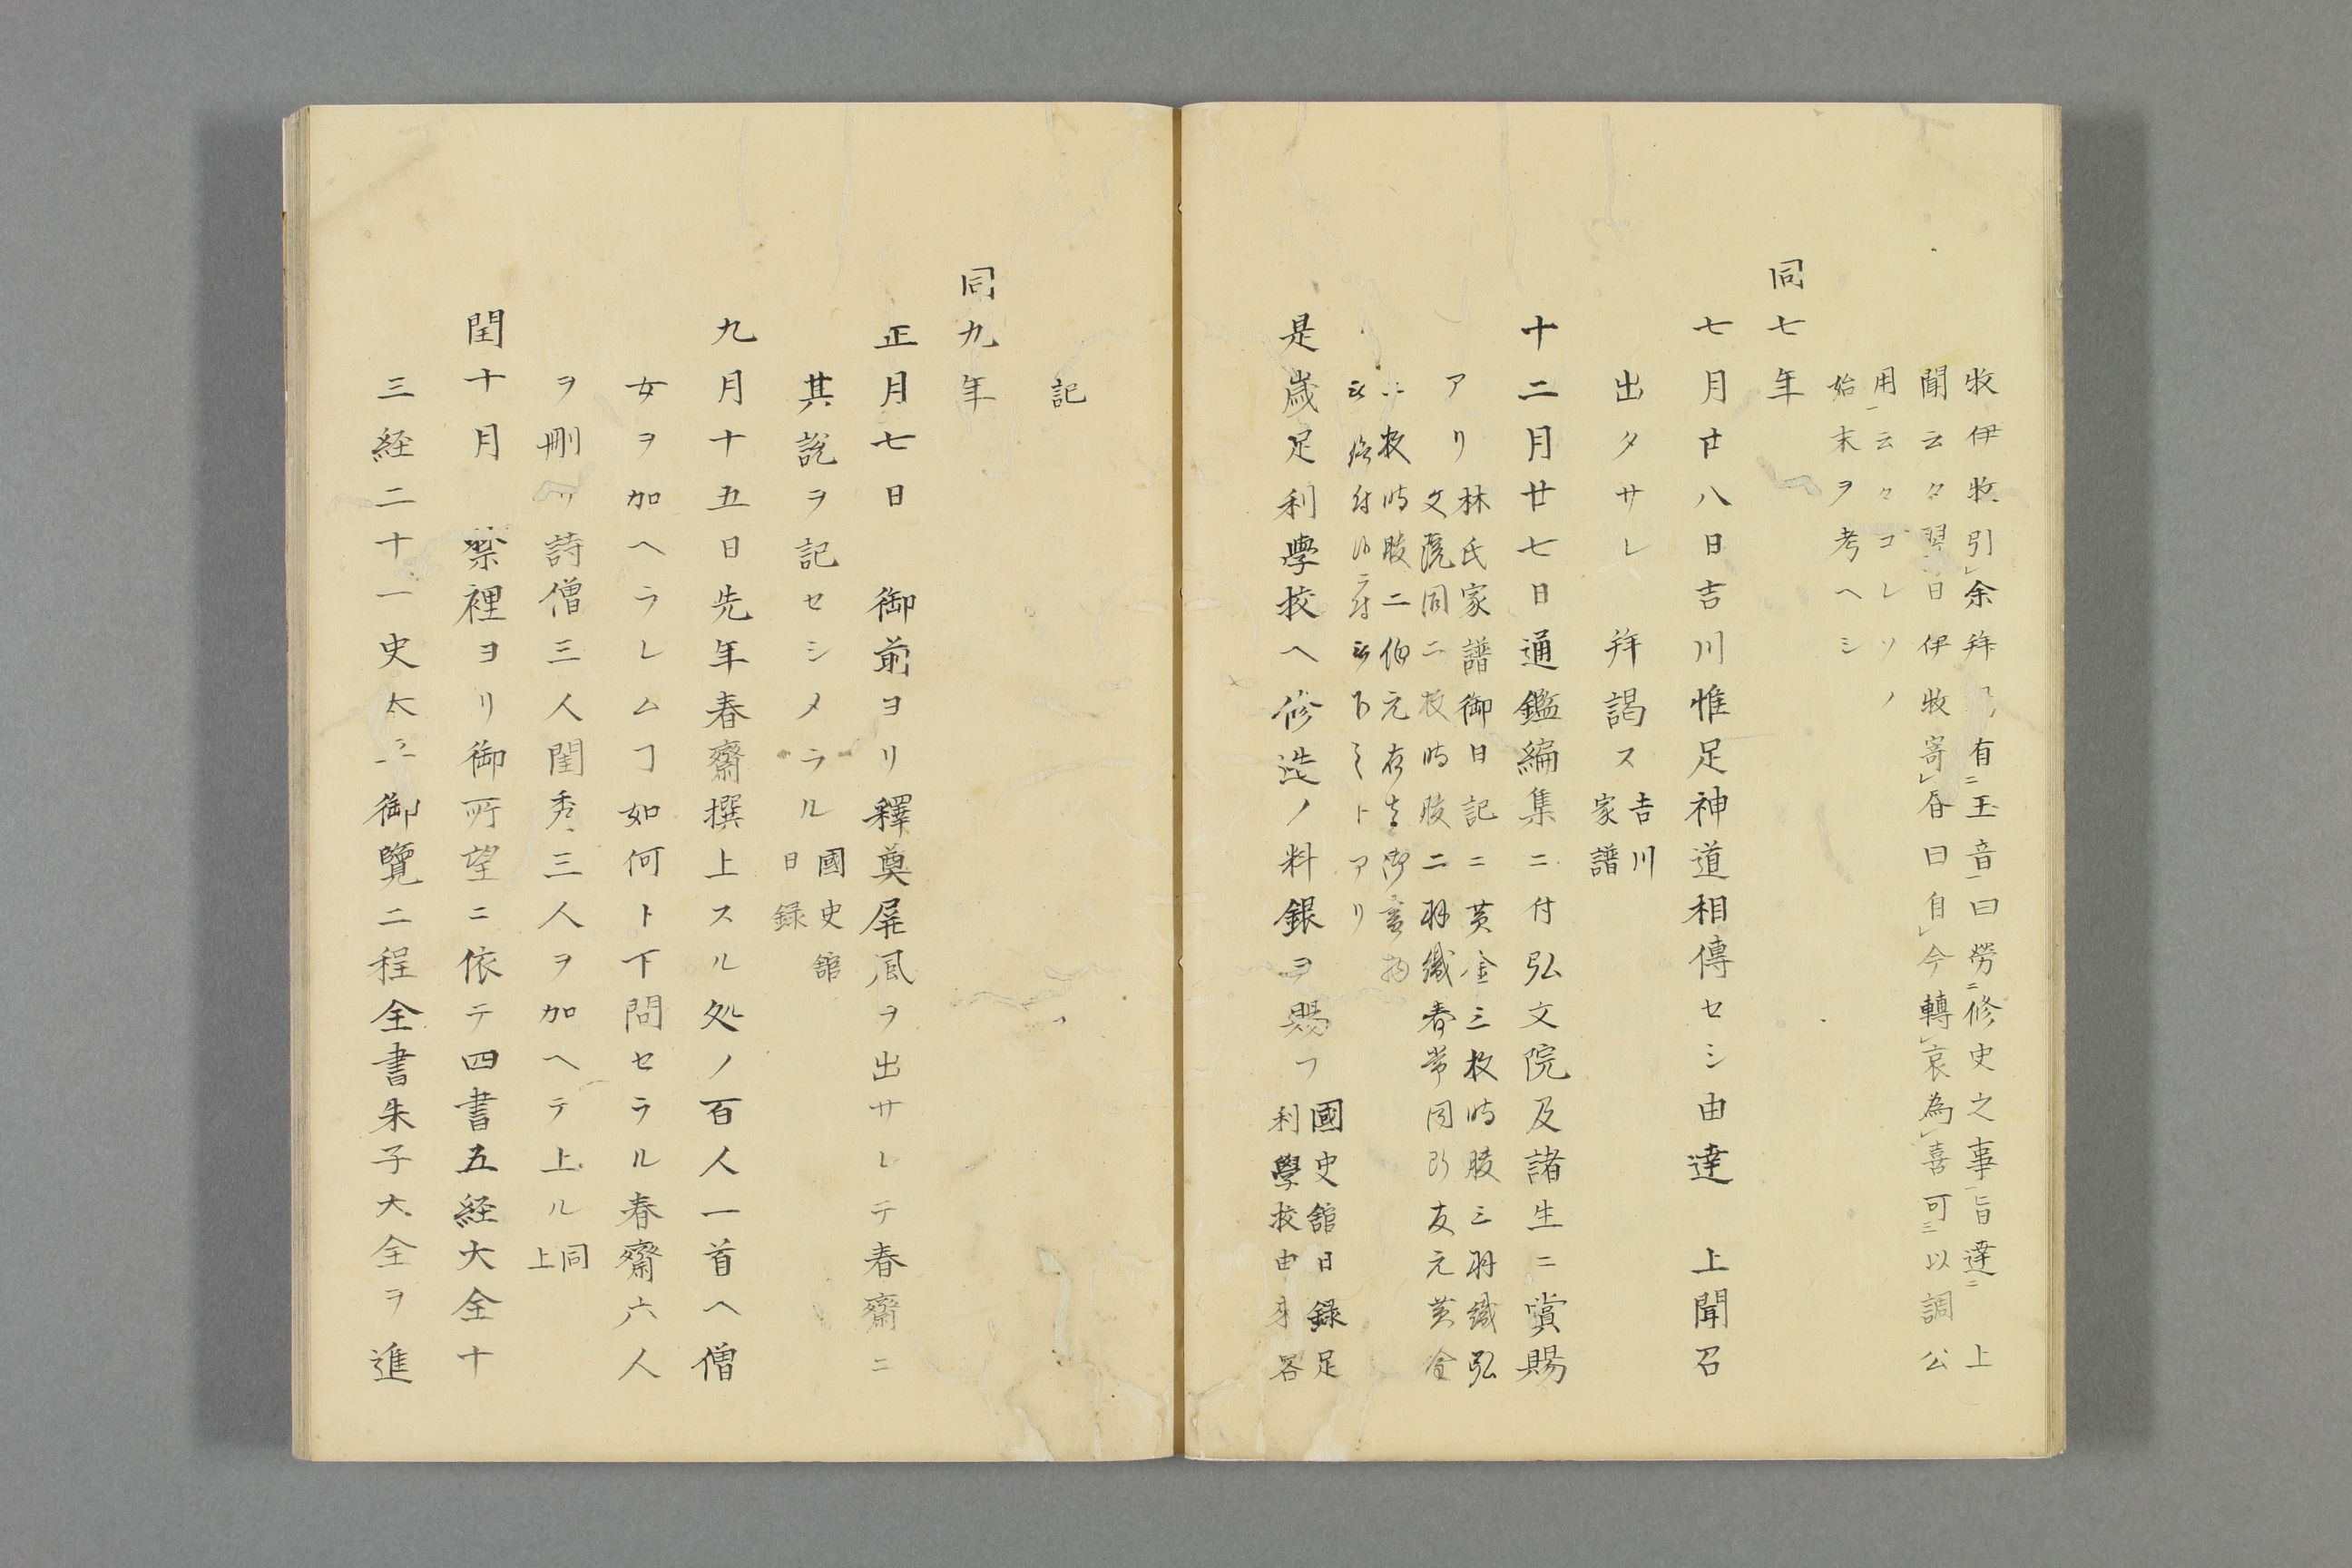 牧伊牧引余拜 有ニ玉音一曰勞ニ修史之事一旨達ニ 上
聞云々翌日伊牧寄レ春曰自レ今轉レ哀為レ喜可三以調公
用一云々コレソノ
始末ヲ考ヘシ
同七年
七月廿八日吉川惟足神道相傳セシ由達 上聞召
出タサレ 拜謁ス吉川
家譜
十二月廿七日通鑑編集ニ付弘文院及諸生ニ賞賜
アリ林氏家譜御日記ニ黄金三枚時服三羽織弘
文院同二枚時服二羽織春常同断友元黄金
二枚時服二伯元
トアリ
是歳足利學挍ヘ修造ノ料銀ヲ賜フ國史舘日録足
利學挍由来畧
記
同九年
正月七日 御前ヨリ釋奠屏風ヲ出サレテ春齋ニ
其說ヲ記セシメラル國史舘
日録
九月十五日先年春齋撰上スル処ノ百人一首ヘ僧
女ヲ加ヘラレムヿ如何ト下問セラル春齋六人
ヲ刪リ詩僧三人閨秀三人ヲ加ヘテ上ル同
上
閏十月 禁裡ヨリ御所望ニ依テ四書五経大全十
三経二十一史太平御覽二程全書朱子大全ヲ進